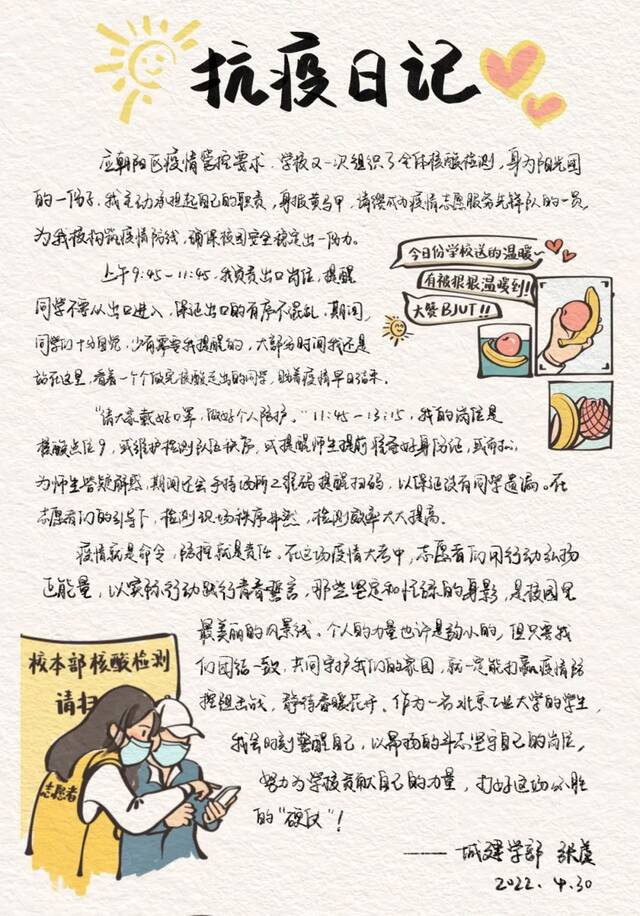 抗疫日记
应朝阳区疫情管控要求,学校又一次组织了全体核酸检测,身为阳光团
的一份子,我主动承担起自己的职责,身披黄马甲,请缨成为疫情志愿服务先锋队的一员
为我校构筑疫情防线,确保校园安全稳定出一份力。
上午9:45-11:45,我负责出口岗位,提醒
同学不要从出口进入,保证出口的有序不混乱,期间,
同学们十分自觉,少有需要我提醒的,大部分时间我还是
站在这里,看着一个个做完核酸走出的同学,盼着疫情早日结束。
今日份学校送的温暖~
有被狠狠温暖到!
大赞BJUT!!
“请大家戴好口罩,做好个人防护。”11:45-13:15,我的岗位是
核酸点位9,或维护检测队伍秩序,或提醒师生提前准备好身份证,或
为师生答疑解惑,期间还会手持场所二维码提醒扫码,以保证没有同学遗漏。在
志愿者们的引导下,检测现场秩序井然,检测效率大大提高。
疫情就是命令,防控就是责任,在这场疫情大考中,志愿者们用行动弘扬
正能量,以实际行动践行青春誓言,那些坚定和忙碌的身影,是校园里
最美丽的风景线。个人的力量也许是韵小的,但只要我
们团结一致,共同守护我们的家园,就一定能打赢疫情防
控阻击战,静待春暖花开。作为一名北京工业大学的学生,
我会时刻警醒自己,以昂扬的斗志坚守自己的岗位,
努力为学校贡献自己的力量,打好这场必胜
的“硬仗”!
校本部核酸检测
请扫
志愿者
——城建学部 张
2022.4.30